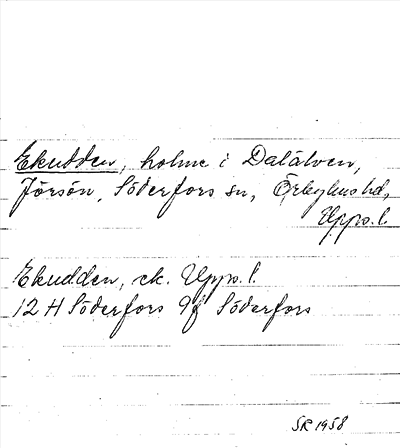 Ekudden, holme i Dalälven,
Jörsön, Söderfors sn, Örbyhus hd,
Upps. l.
Ekudden, ek. Upps. l.
12 H Söderfors 9f Söderfors
SR 1958